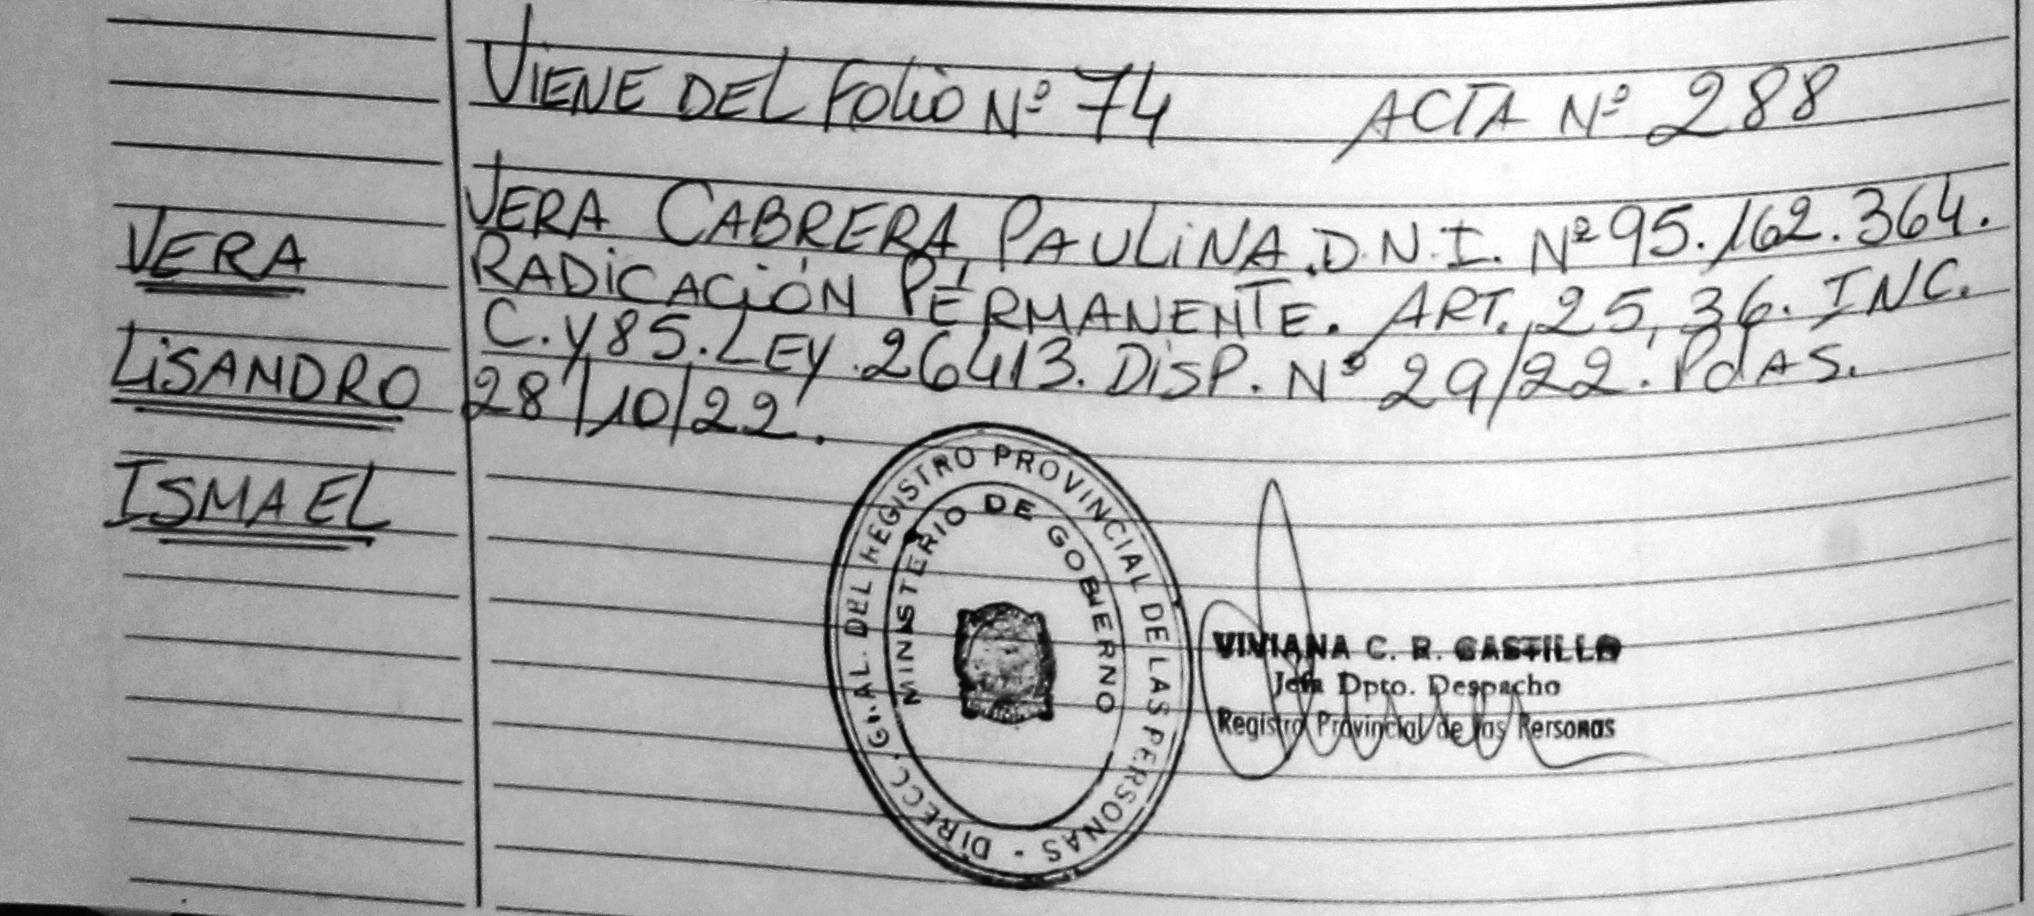 VIENE DEL FOLIO Nº 74 ACTA Nº 288
VERA
LISANDRO
ISMAEL
VERA CABRERA, PAULINA. D.N.I. Nº 95.162.364.
RADICACIÓN PERMANENTE. ART. 25, 36. INC.
C. Y 85. LEY. 26413. DISP. Nº 29/22. PdAS.
28/10/22.
DIRECC. GRAL. DEL REGISTRO PROVINCIAL DE LAS PERSONAS -
MINISTERIO DE GOBIERNO
VIVIANA C. R. CASTILLO
Jefa Dpto. Despacho
Registro Provincial de las Personas